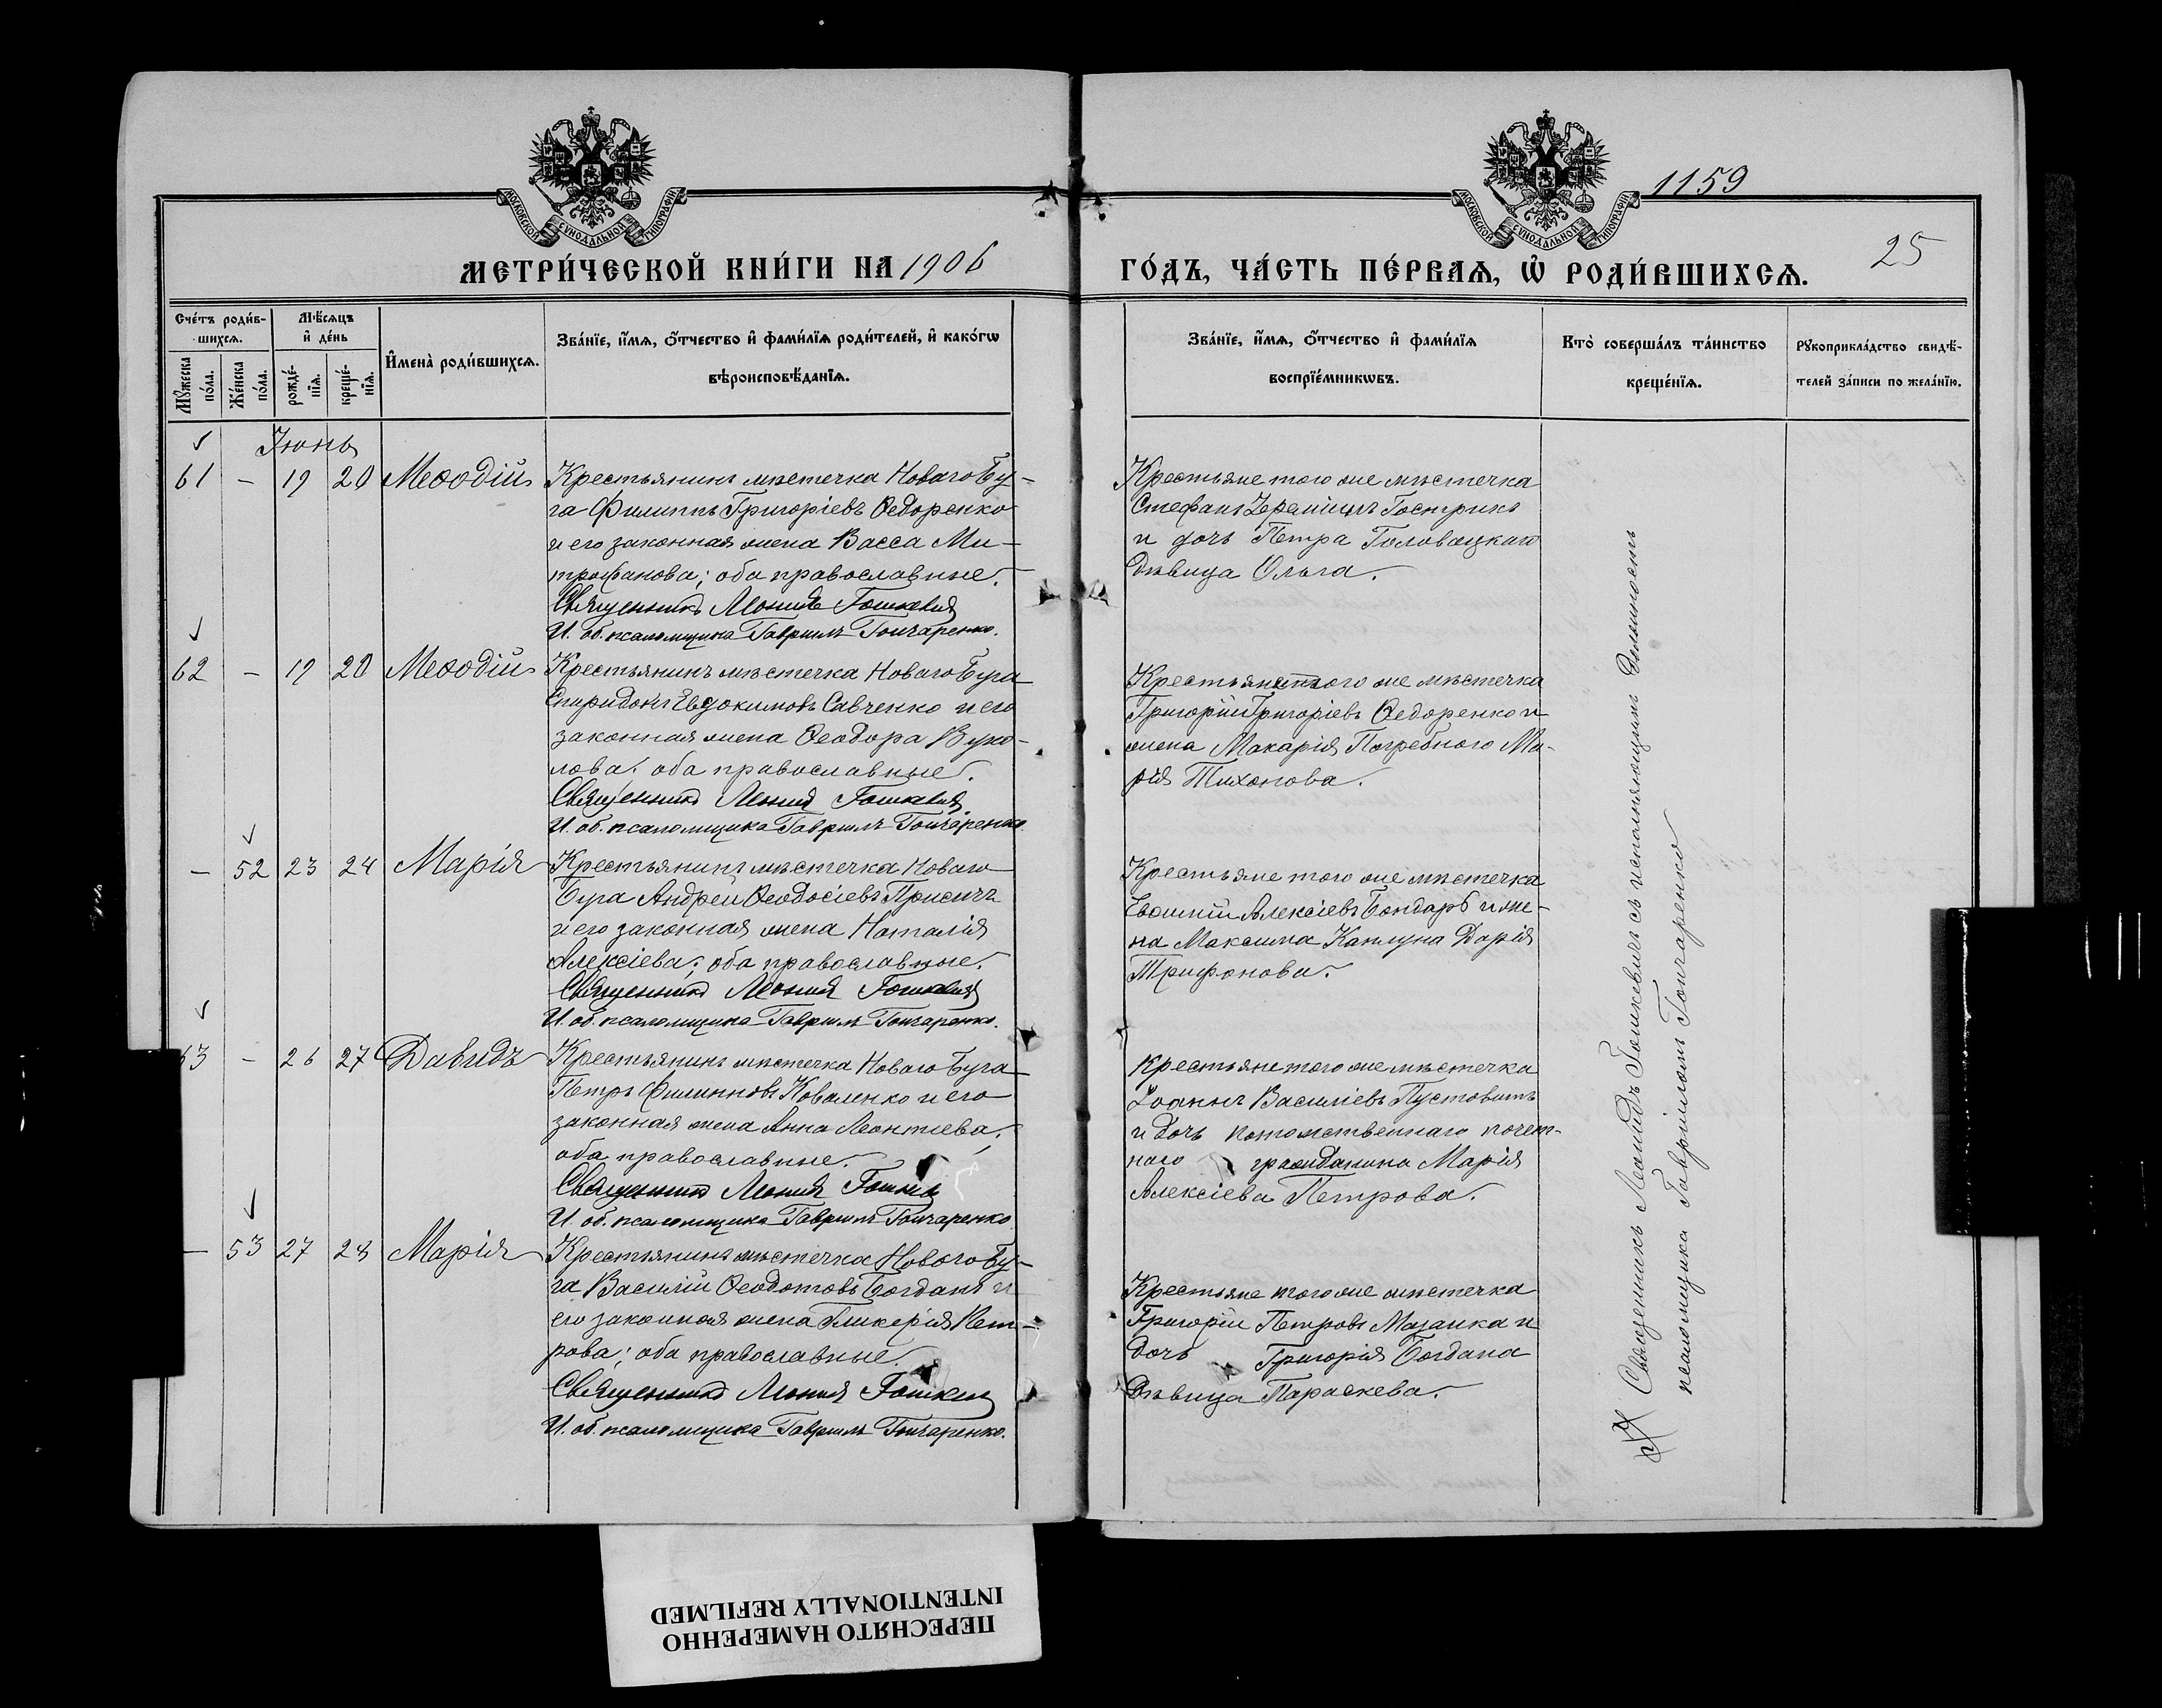 МОСКОВСКОЙ СѴНОДАЛЬНОЙ ТИПОГРАФІИ
МОСКОВСКОЙ СѴНОДАЛЬНОЙ ТИПОГРАФІИ
1159
МЕТРИ́ЧЕСКОЙ КНИ́ГИ НА 1906
ГО́ДЪ, ЧА́СТЬ ПЕ́РВАѦ, Ѡ҆ РОДИ́ВШИХСѦ.
25
Сче́тъ роди́в-
шихсѧ.
Мꙋ́жеска по́ла.
Же́нска по́ла.
Мѣ́сѧцъ и҆ де́нь
рожде́-нїѧ.
креще́-нїѧ.
И҆мена̀ роди́вшихсѧ.
Зва́нїе, и҆́мѧ, ѻ҆́тчество и҆ фами́лїѧ роди́телей, и҆ како́гѡ
вѣроисповѣ́данїѧ.
Зва́нїе, и҆́мѧ, ѻ҆́тчество и҆ фами́лїѧ
воспрїе́мникѡвъ.
Кто̀ соверша́лъ та́инство
креще́нїѧ.
Рꙋкоприкла́дство свидѣ́-
телей за́писи по жела́нїю.
Іюнь
61 - 19 20 Меѳодій
Крестьянинъ мѣстечка Новаго Бу-
га Филиппъ Григоріевъ Ѳедоренко
и его законная жена Васса Ми-
трофанова; оба православные.
Священникъ Леонидъ Гошкевичъ
И. об. псаломщика Гавриилъ Гончаренко.
Крестьяне того же мѣстечка
Стефанъ Гострикъ
и дочь Петра Головацкаго
дѣвица Ольга.
62 - 19 20 Меѳодій
Крестьянинъ мѣстечка Новаго Буга
Спиридонъ Евдокимовъ Савченко и его
законная жена Ѳеодора Вуко-
лова; оба православные.
Священникъ Леонидъ Гошкевичъ
И. об. псаломщика Гавриилъ Гончаренко.
Крестьяне того же мѣстечка
Григорій Григоріевъ Ѳедоренко и
жена Макарія Погребного Ма-
рія Тихонова.
- 52 23 24 Марія
Крестьянинъ мѣстечка Новаго
Буга Андрей Ѳеодосіевъ
и его законная жена Наталія
Алексіева; оба православные.
Священникъ Леонидъ Гошкевичъ
И. об. псаломщика Гавриилъ Гончаренко.
Крестьяне того же мѣстечка
Евѳимій Алексіевъ Бондарь и же-
на Максима Каплуна Дарія
Трифонова.
63 - 26 27 Давидъ
Крестьянинъ мѣстечка Новаго Буга
Петръ Филипповъ Коваленко и его
законная жена Анна Леонтіева;
оба православные.
Священникъ Леонидъ Гошкевичъ
И. об. псаломщика Гавриилъ Гончаренко
Крестьяне того же мѣстечка
Іоаннъ Василіевъ Пустовитъ
и дочь потомственнаго почет-
наго гражданина Марія
Алексіева Петрова.
- 53 27 28 Марія
Крестьянинъ мѣстечка Новаго Бу-
га Василій Ѳеодотовъ Богданъ и
его законная жена Гликерія Пет-
рова; оба православные.
Священникъ Леонидъ Гошкевичъ
И. об. псаломщика Гавриилъ Гончаренко.
Крестьяне того же мѣстечка
Григорій Петровъ Мазанка и
дочь Григорія Богдана
дѣвица Параскева.
Священникъ Леонидъ Гошкевичъ съ исполняющимъ должность
псаломщика Гавріиломъ Гончаренко
ПЕРЕСНЯТО НАМЕРЕННО
INTENTIONALLY REFILMED